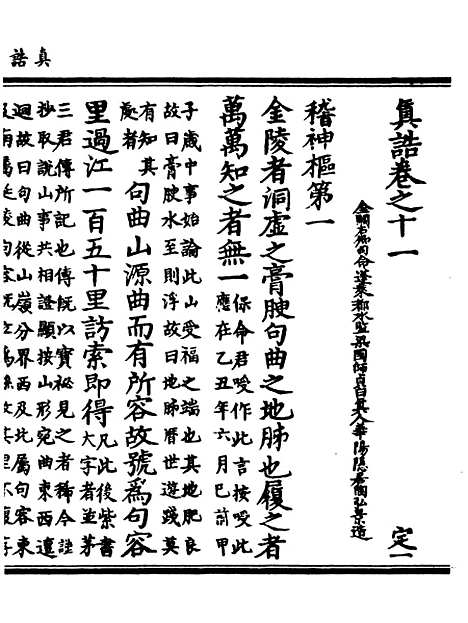 真誥
真誥卷之十一 定一
金闕右卿司命蓬萊都水監梁國師貞白真人華陽隱居陶弘景造
稽神樞第一
金陵者洞虛之膏腴句曲之地肺也履之者
萬萬知之者無一
保命君唆作此言按唆此
應在乙丑年六月已前甲
子歲中事始論此山受福之端也其地肥良
故曰膏腴水至則浮故曰地肺曆世遊踐莫
有知其
處者
句曲山源曲而有所容故號爲句容
里過江一百五十里訪索即得
凡此後紫書
大字者並茅
三君傳所記也傳既以寶祕見之者稀今註
抄取說山事共相證顯按山形宛曲東西遠
迴故曰句曲從山嶺分界西及北屬句容東
及南屬延陵句容既立爲縣故其里不復存